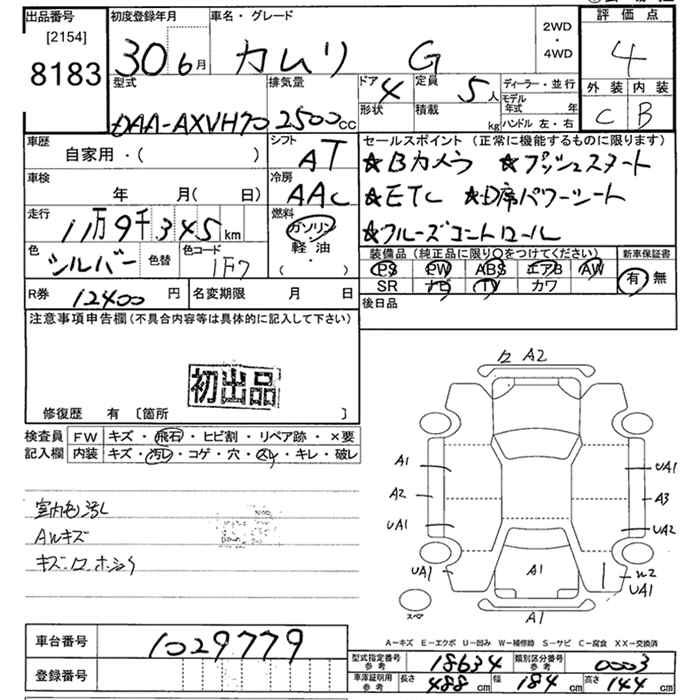 出品番号
[2154]
8183
初度登録年月
30 6月
車名・グレード
カムリ G
2WD
・
4WD
評価点
4
外装 内装
C B
型式
DAA-AXVH70
排気量
2500cc
ドア 4
形状
定員 5人
積載 kg
ディーラー・並行
モデル年式 年
ハンドル 左・右
車歴
自家用・( )
シフト
AT
車検
年 月( 日)
冷房
AAC
走行
11万9千345km
燃料
ガソリン
軽油
・
色
シルバー
色替
色コード
1F7
セールスポイント(正常に機能するものに限ります)
★Bカメラ ★プッシュスタート
★ETC ★D席パワーシート
★クルーズコントロール
装備品(純正品に限り○をつけてください)
PS PW ABS エアB AW
SR ナビ TV カワ
新車保証書
有 無
R券 12400円
名変期限 月 日
後日品
注意事項申告欄(不具合内容等は具体的に記入して下さい)
初出品
修復歴 有 〔箇所 〕
検査員
記入欄
FW キズ・飛石・ヒビ割・リペア跡・×要
内装 キズ・汚レ・コゲ・穴・スレ・キレ・破レ
室内色汚レ
AWキズ
A2
A1
A2
UA1
UA1
UA1
A3
UA2
UA1
A1
A1
スペア
A-キズ E-エクボ U-凹み W-補修跡 S-サビ C-腐食 XX-交換済
車台番号 1029779
登録番号
型式指定番号参考 18634
類別区分番号参考 0003
車庫証明用参考 長さ 488cm 幅 184cm 高さ 144cm